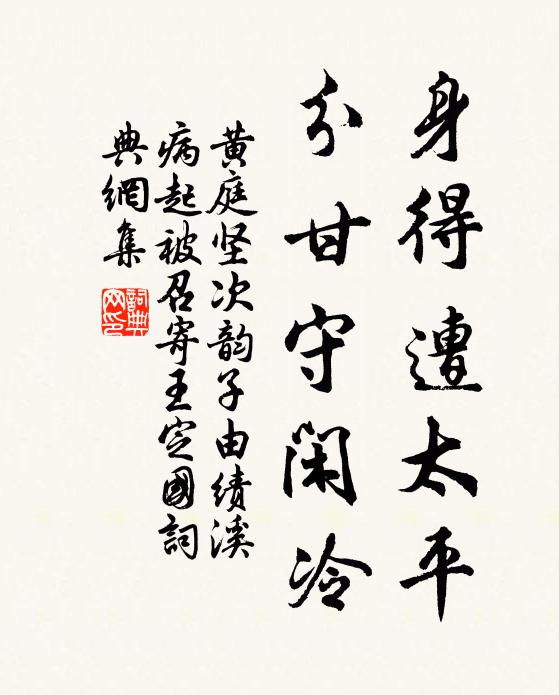 身得遭太平
分甘守閑冷
黄庭坚次韵子由绩溪
病起被召寄王定國詞
典網集
詞典网印